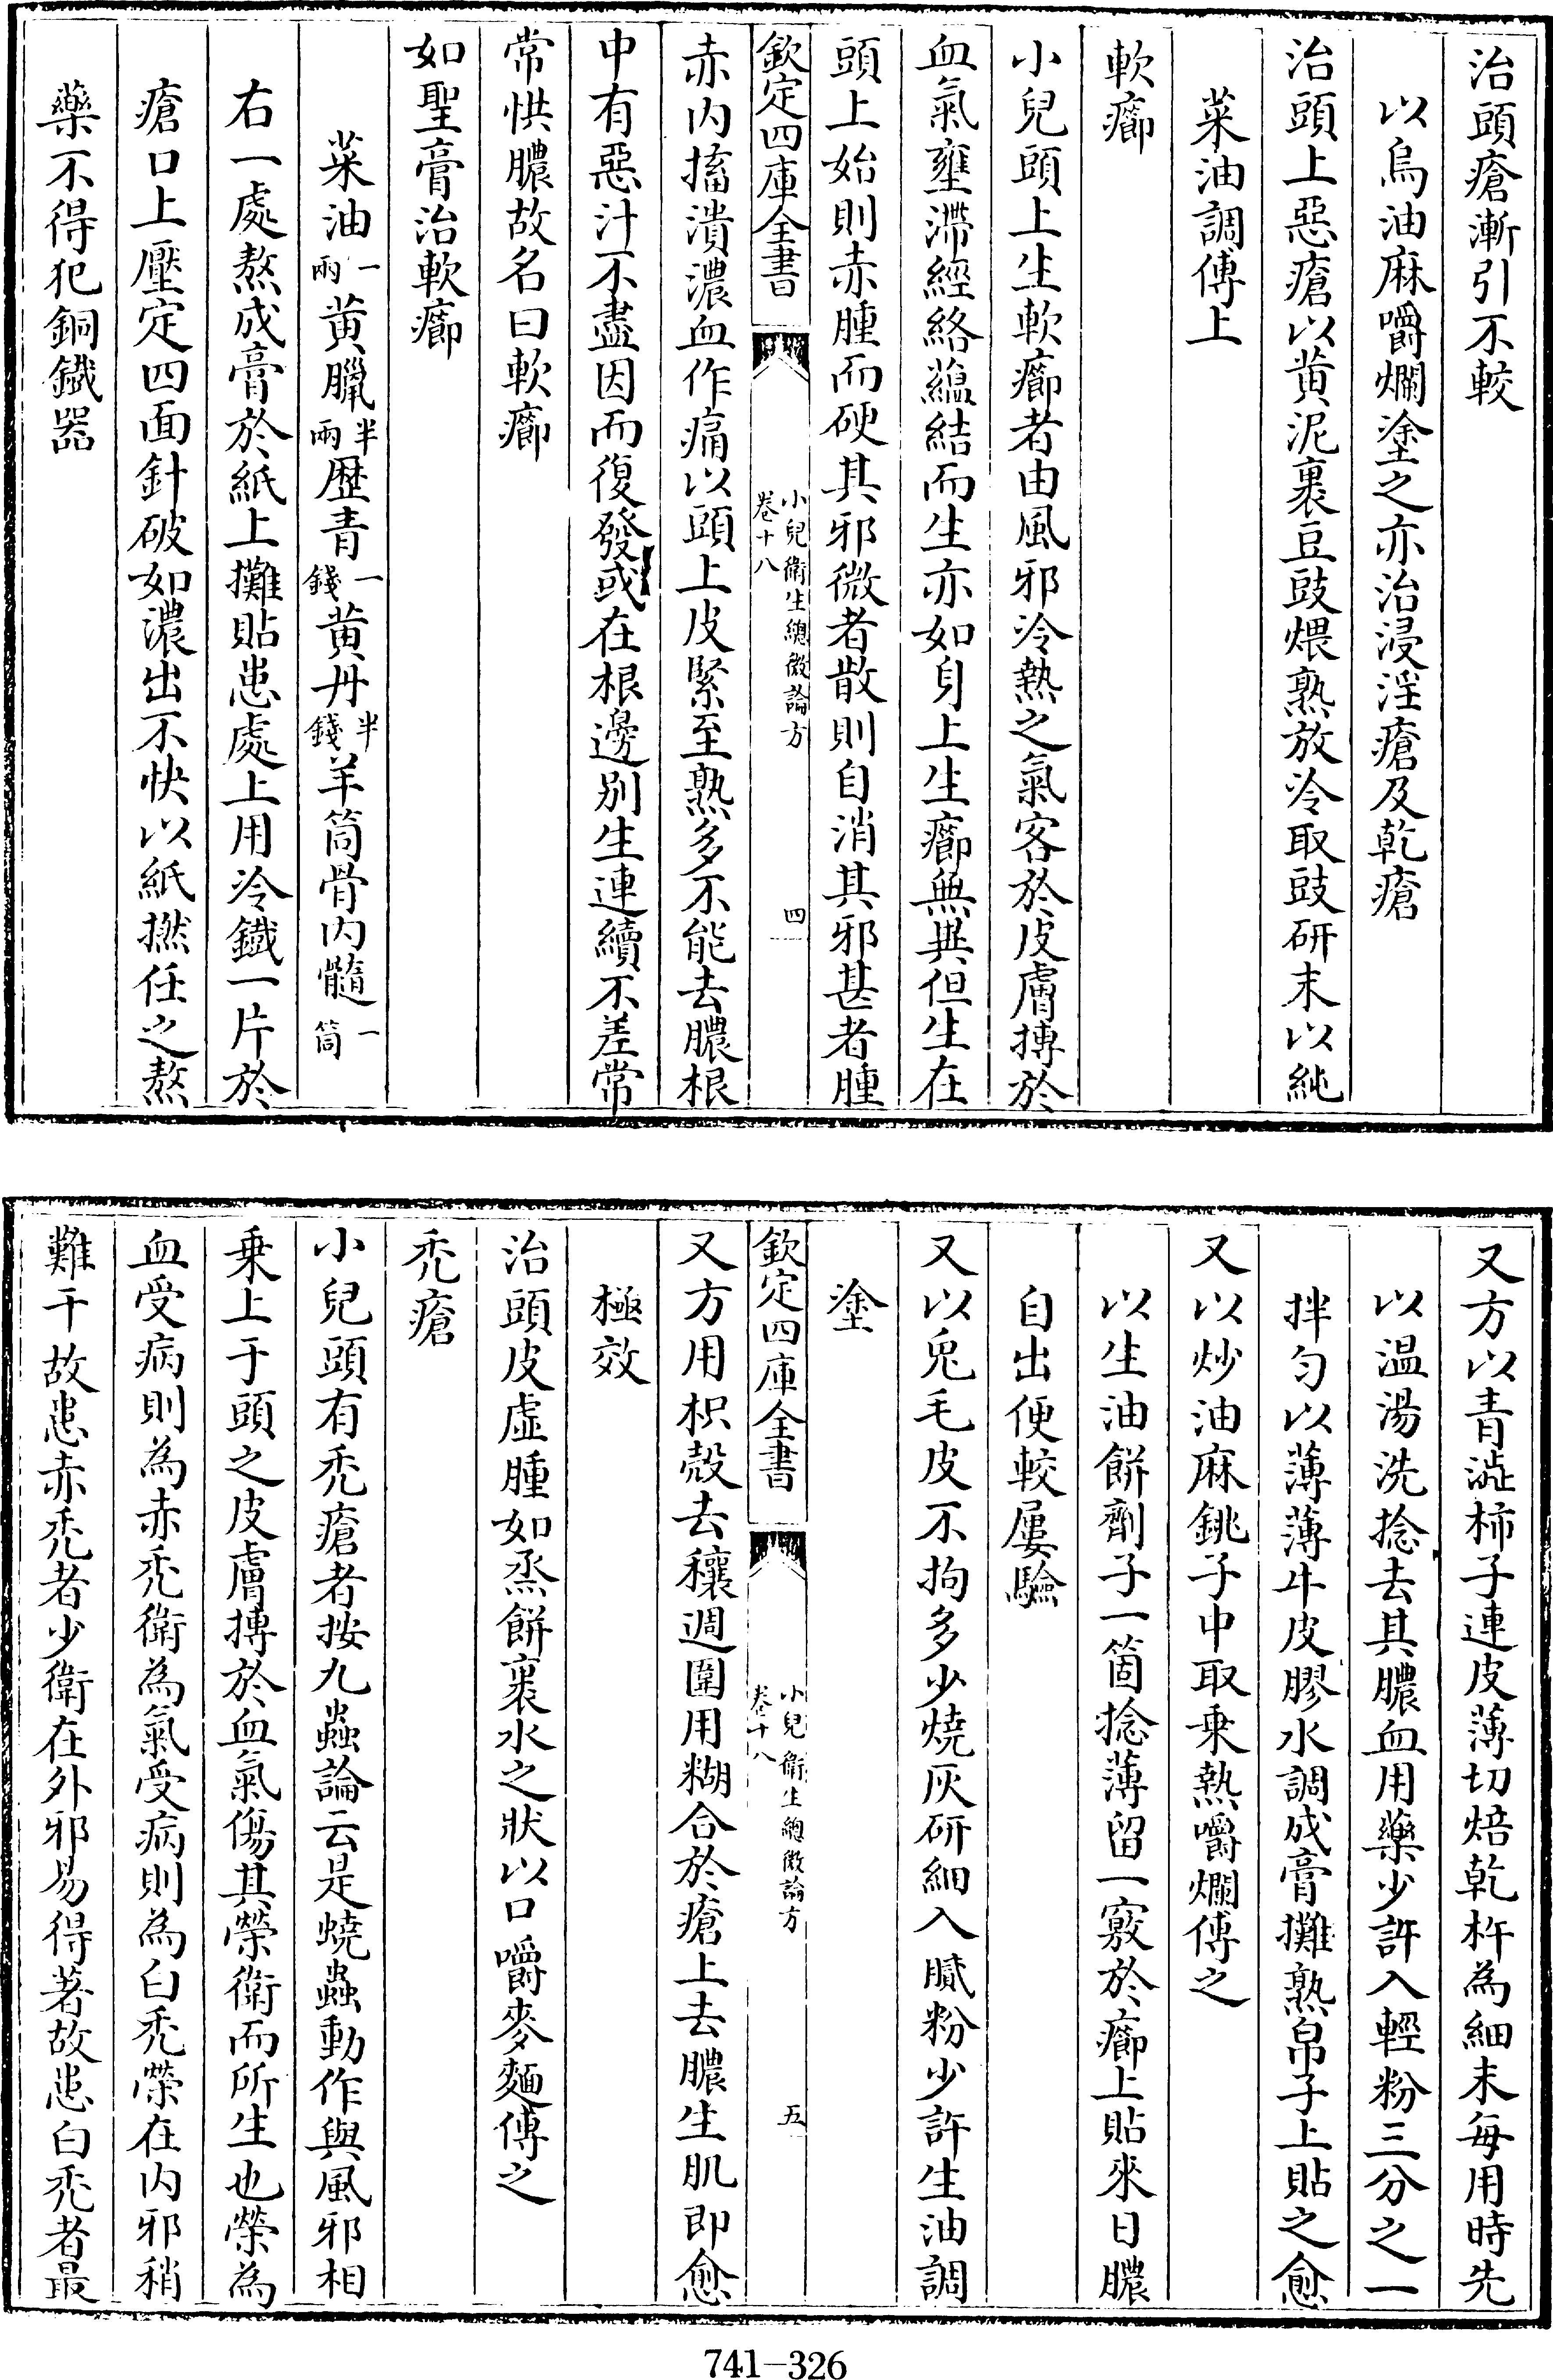 治頭瘡漸引不較
以烏油麻嚼爛塗之亦治浸淫瘡及乾瘡
治頭上惡瘡以黄泥裹豆豉煨熟放冷取豉研末以純
菜油調傅上
軟癤
小兒頭上生軟癤者由風邪冷熱之氣客於皮膚搏於
血氣壅滯經絡蘊結而生亦如身上生癤無異但生在
頭上始則赤腫而硬其邪微者散則自消其邪甚者腫
欽定四庫全書
小兒衛生總微論方
卷十八
四
赤内搐潰濃血作痛以頭上皮緊至熟多不能去膿根
中有惡汁不盡因而復發或在根邊别生連續不差常
常供膿故名曰軟癤
如聖膏治軟癤
菜油一兩黄臘半兩歴青一錢黄丹半錢羊筒骨内髓一筒
右一處熬成膏於紙上攤貼患處上用冷鐵一片於
瘡口上壓定四面針破如濃出不快以紙撚任之熬
藥不得犯銅鐵器
又方以青澁柿子連皮薄切焙乾杵為細末每用時先
以温湯洗捻去其膿血用藥少許入輕粉三分之一
拌匀以薄薄牛皮膠水調成膏攤熟帛子上貼之愈
又以炒油麻銚子中取乗熱嚼爛傅之
以生油餅劑子一箇捻薄留一竅於癤上貼來日膿
自出便較屢驗
又以兎毛皮不拘多少燒灰研細入膩粉少許生油調
塗
欽定四庫全書
小兒衛生總微論方
卷十八
五
又方用枳殻去穰週圍用糊合於瘡上去膿生肌即愈
極效
治頭皮虚腫如烝餅裹水之狀以口嚼麥麵傅之
禿瘡
小兒頭有禿瘡者按九蟲論云是蟯蟲動作與風邪相
乗上于頭之皮膚搏於血氣傷其榮衛而所生也榮為
血受病則為赤禿衛為氣受病則為白禿榮在内邪稍
難干故患赤禿者少衛在外邪易得著故患白禿者最
741-326